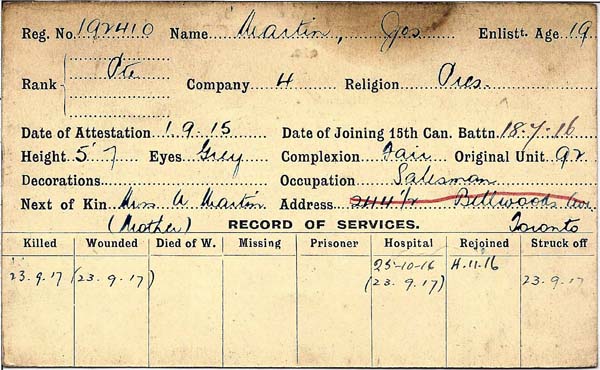 Reg. No. 192410 Name Martin, Jos Enlistt. Age 19
Rank Pte Company 4 Religion Pres.
Date of Attestation 1.9.15 Date of Joining 15th Can. Battn. 18.7.16
Height 5' 7 Eyes Grey Complexion Fair Original Unit 92
Decorations Occupation Salesman
Next of Kin Mrs A Martin Address 244 1/2 Bellwoods Ave.
(Mother) RECORD OF SERVICES. Toronto
Killed Wounded Died of W. Missing Prisoner Hospital Rejoined Struck off
25-10-16 4.11-16
23.9.17 (23.9.17) (23.9.17) 23.9.17